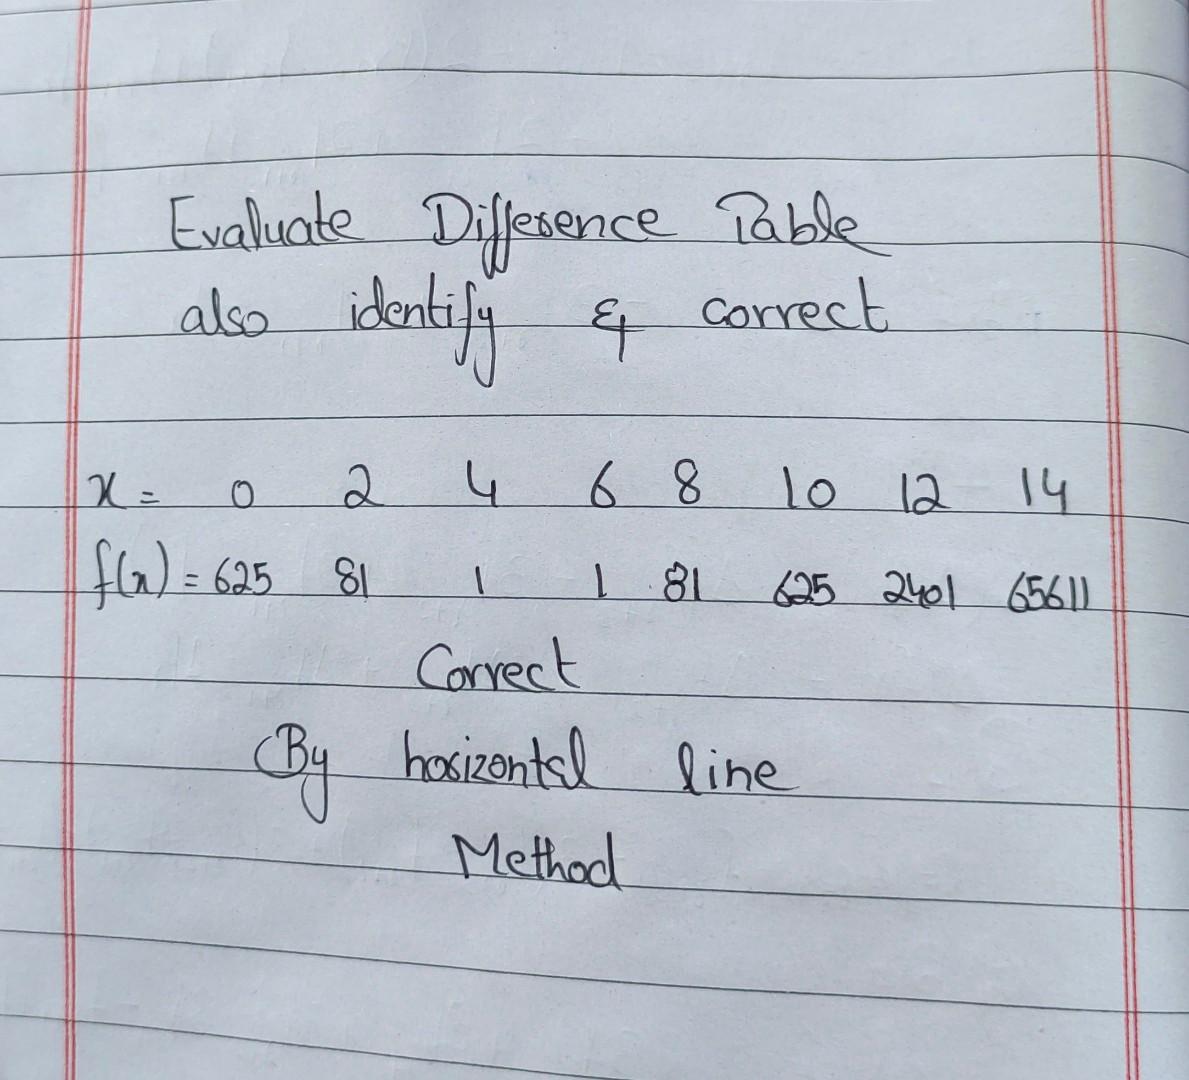 Evaluate Difference Table
also identify & correct
x = 0 2 4 6 8 10 12 14
f(x) = 625 81 1 1 81 625 2401 65611
Correct
By horizontal line
Method